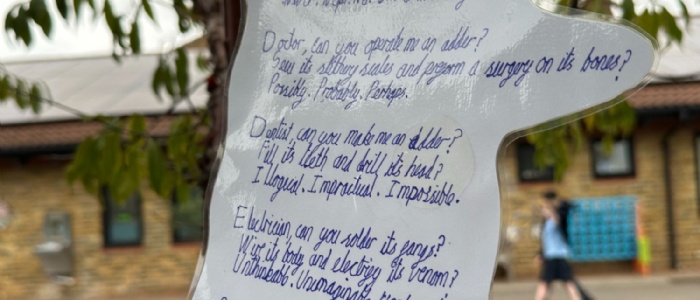 Doctor, can you operate me an adder?
Sew its slithery scales and perform a surgery on its bones?
Possibly. Probably. Perhaps.
Dentist, can you make me an adder?
Fill its teeth and drill its head?
Illogical. Impractical. Impossible.
Electrician, can you solder its fangs?
Wire its body and electrify its venom?
Unthinkable. Unimaginable.